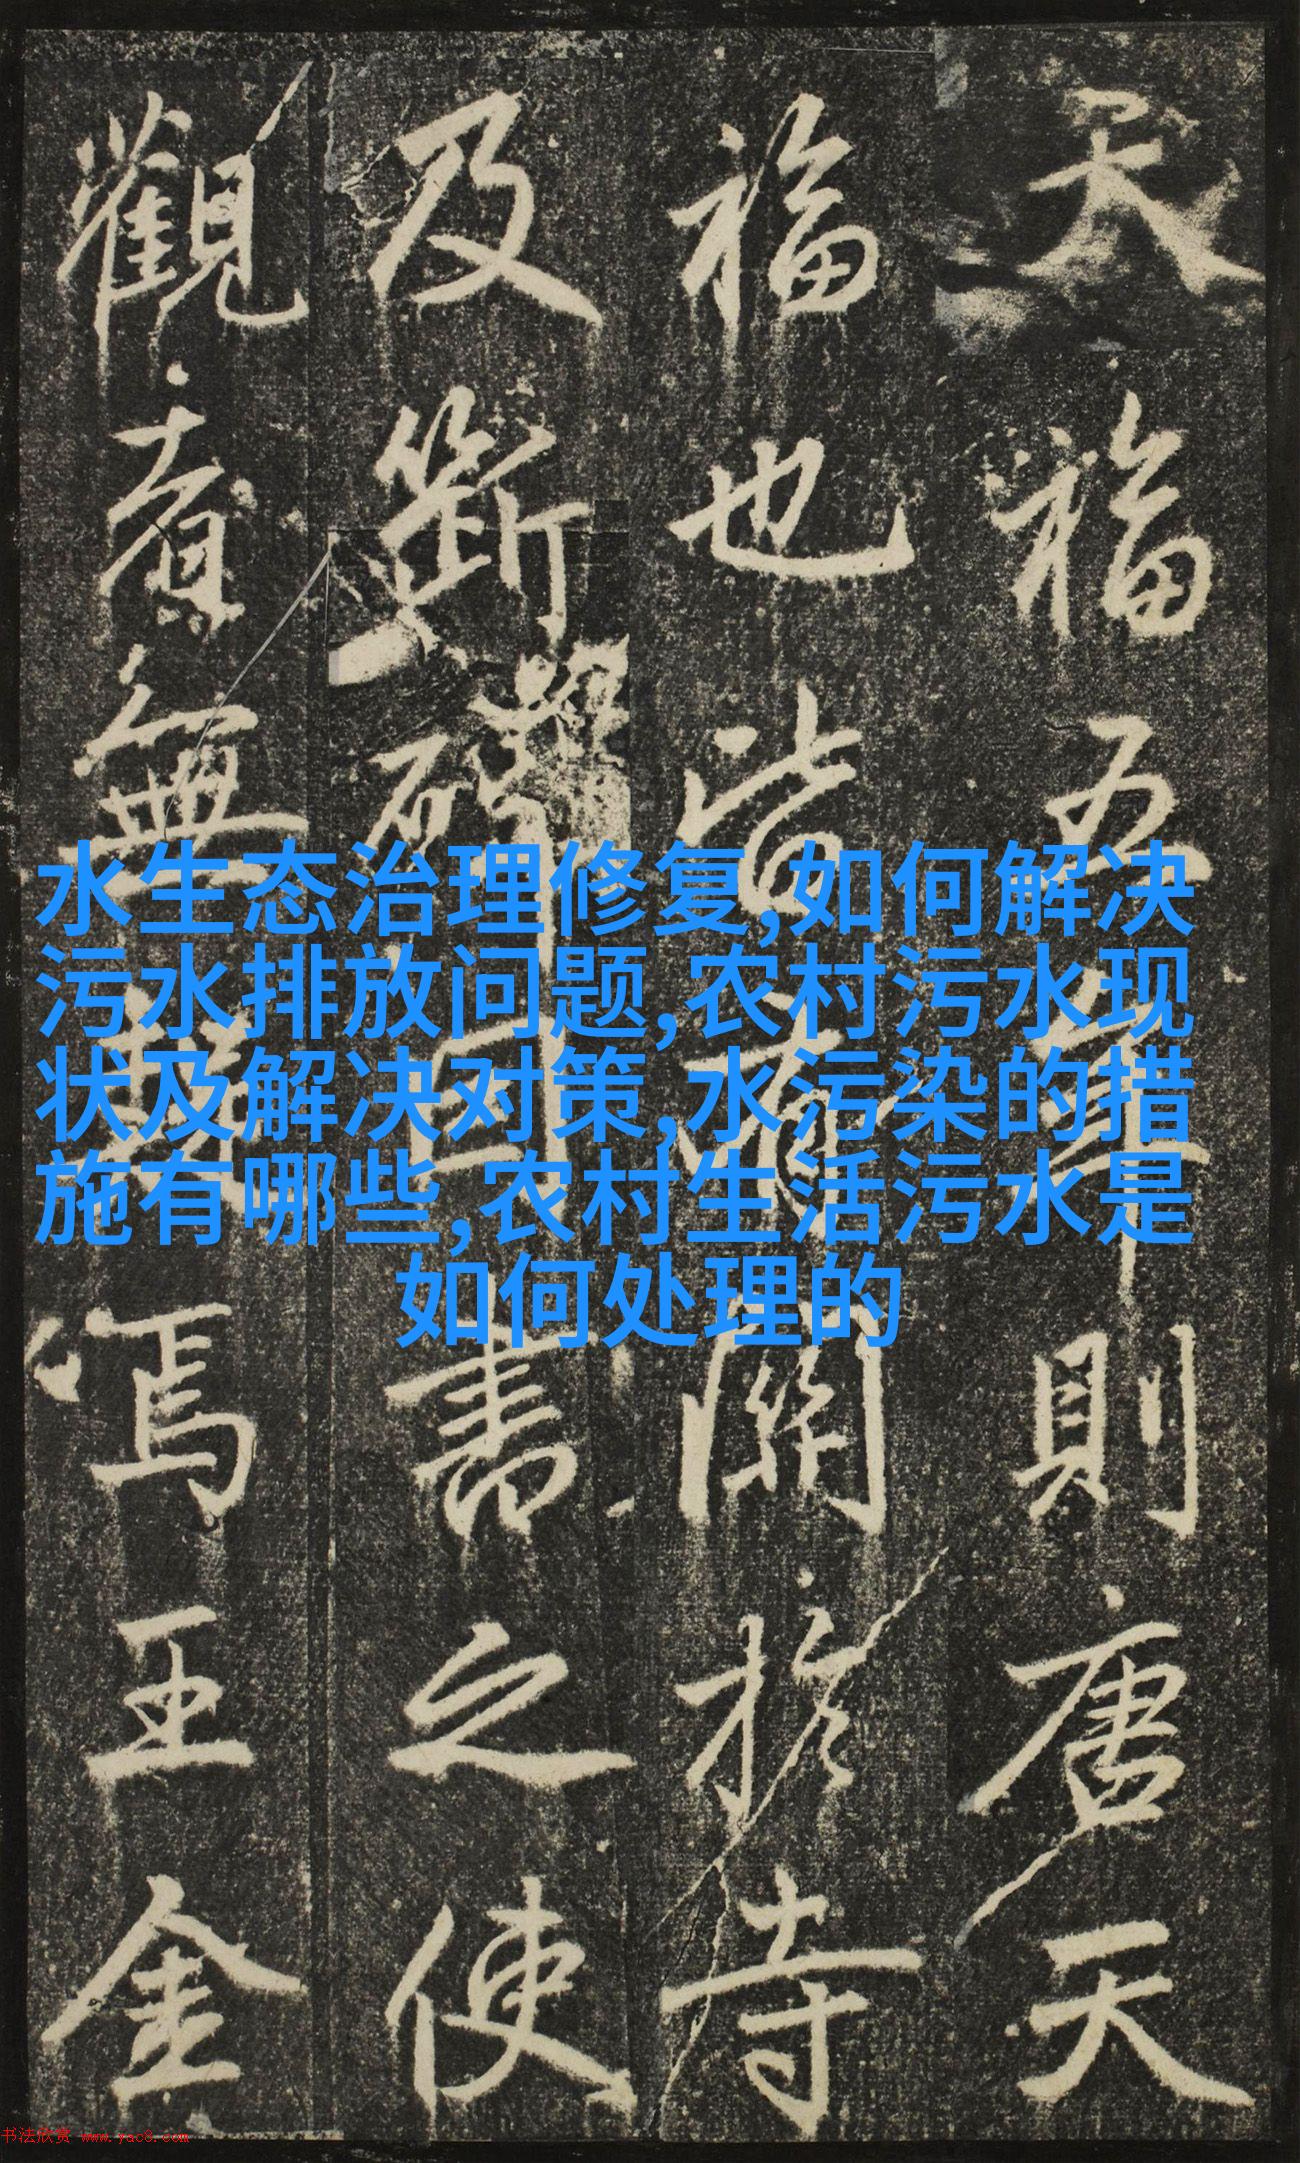 水生态治理修复,如何解决
污水排放问题,农村污水现
状及解决对策,水污染的措
施有哪些,农村生活污水是
如何处理的
天福五年則唐天
福也皆有關扵寺
及斷碑書之使
觀者無焉王金
书法欣赏 www.yac8.com